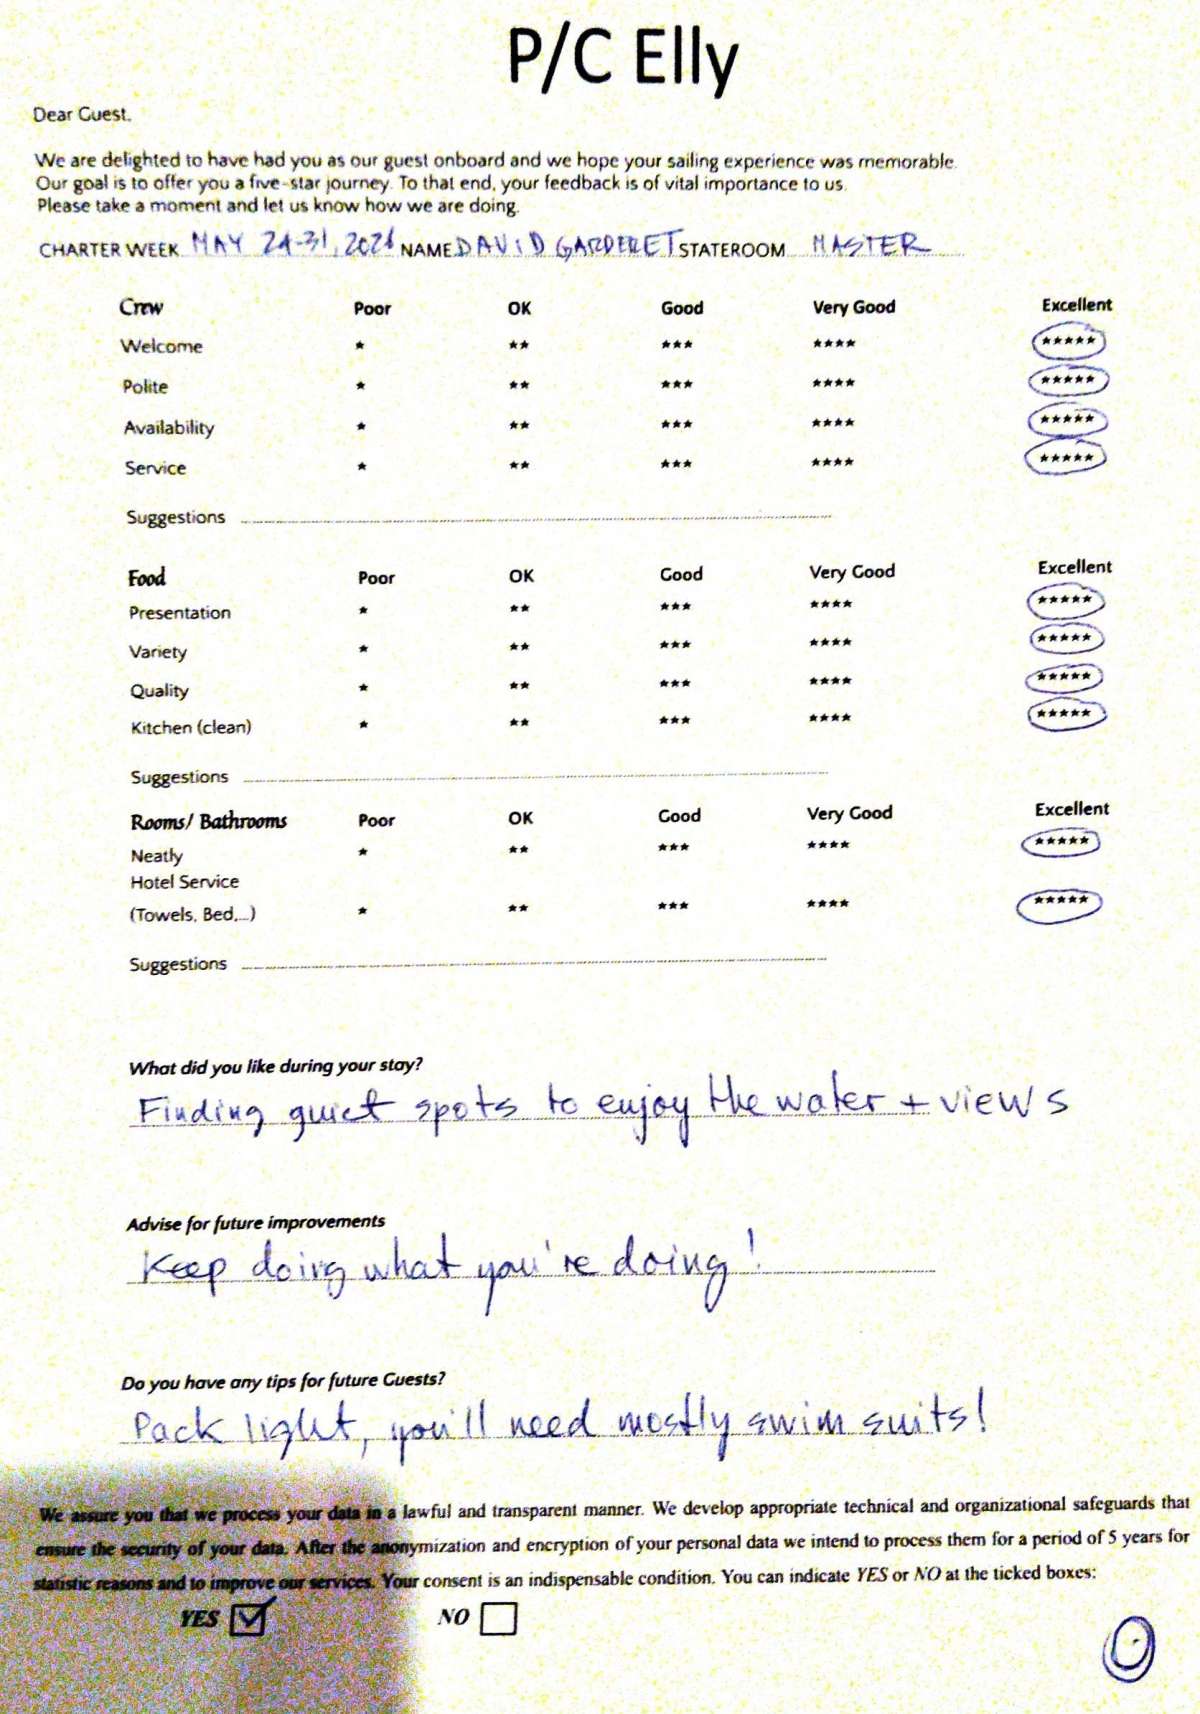 P/C Elly
Dear Guest,
We are delighted to have had you as our guest onboard and we hope your sailing experience was memorable.
Our goal is to offer you a five-star journey. To that end, your feedback is of vital importance to us.
Please take a moment and let us know how we are doing.
CHARTER WEEK MAY 24-31, NAME DAVID GARDERET STATEROOM MASTER
Crew Poor OK Good Very Good Excellent
Welcome * ** *** **** *****
Polite * ** *** **** *****
Availability * ** *** **** *****
Service * ** *** **** *****
Suggestions
Food Poor OK Good Very Good Excellent
Presentation * ** *** **** *****
Variety * ** *** **** *****
Quality * ** *** **** *****
Kitchen (clean) * ** *** **** *****
Suggestions
Rooms/ Bathrooms Poor OK Good Very Good Excellent
Neatly * ** *** **** *****
Hotel Service
(Towels, Bed,...) * ** *** **** *****
Suggestions
What did you like during your stay?
Finding quiet spots to enjoy the water + views
Advise for future improvements
Keep doing what you're doing!
Do you have any tips for future Guests?
Pack light, you'll need mostly swim suits!
We assure you that we process your data in a lawful and transparent manner. We develop appropriate technical and organizational safeguards that
ensure the security of your data. After the anonymization and encryption of your personal data we intend to process them for a period of 5 years for
statistic reasons and to improve our services. Your consent is an indispensable condition. You can indicate YES or NO at the ticked boxes:
YES NO